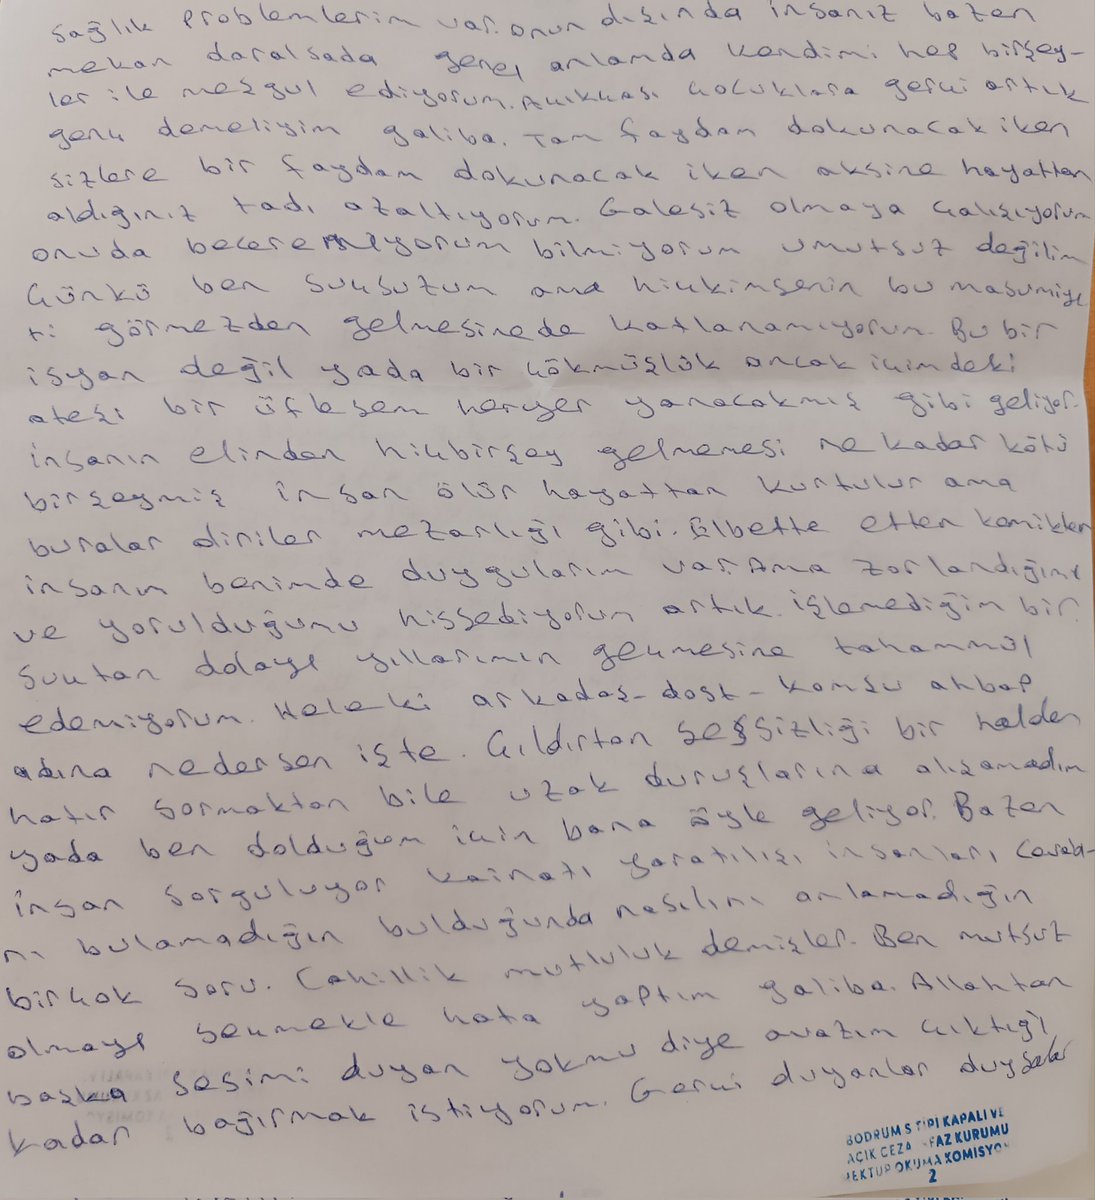 Sağlık problemlerim var. onun dışında insanız bazen
mekan daralsada genel anlamda kendimi hep birşey-
ler ile meşgul ediyorum. Açıkçası çocuklara gerçi artık
genç demeliyim galiba. Tam faydam dokunacak iken
sizlere bir faydam dokunacak iken aksine hayattan
aldığınız tadı azaltıyorum. Çaresiz olmaya çalışıyorum
onuda beceremiyorum bilmiyorum umutsuz değilim
Çünkü ben suçsuzum ama hiçkimsenin bu masumiye
ti görmezden gelmesinede katlanamıyorum. Bu bir
isyan değil yada bir çökmüşlük ancak içimdeki
ateşi bir üflesem heryer yanacakmış gibi geliyor.
insanın elinden hiçbirşey gelmemesi ne kadar kötü
birşeymiş insan ölür hayattan kurtulur ama
buralar diriler mezarlığı gibi. Elbette etten kemikten
insanım benimde duygularım var. Ama zorlandığımı
ve yorulduğumu hissediyorum artık. işlemediğim bir
suçtan dolayı yıllarımın geçmesine tahammül
edemiyorum. Heleki arkadaş-dost-komşu ahbap
adına nedersen işte. Çıldırtan sessizliği bir halden
hatır sormaktan bile uzak duruşlarına alışamadım
yada ben dolduğum için bana öyle geliyor. Bazen
insan sorguluyor kainatı yaratılışı insanları cevab-
nı bulamadığın bulduğunda nasılını anlamadığın
birçok soru. Cahillik mutluluk demişler. Ben mutsuz
olmayı seçmekle hata yaptım galiba. Allahtan
başka sesimi duyan yokmu diye avazım çıktığı
kadar bağırmak istiyorum. Gerçi duyanlar duysalar
BODRUM S TİPİ KAPALI VE
AÇIK CEZA FAZ KURUMU
MEKTUP OKUMA KOMİSYO
2